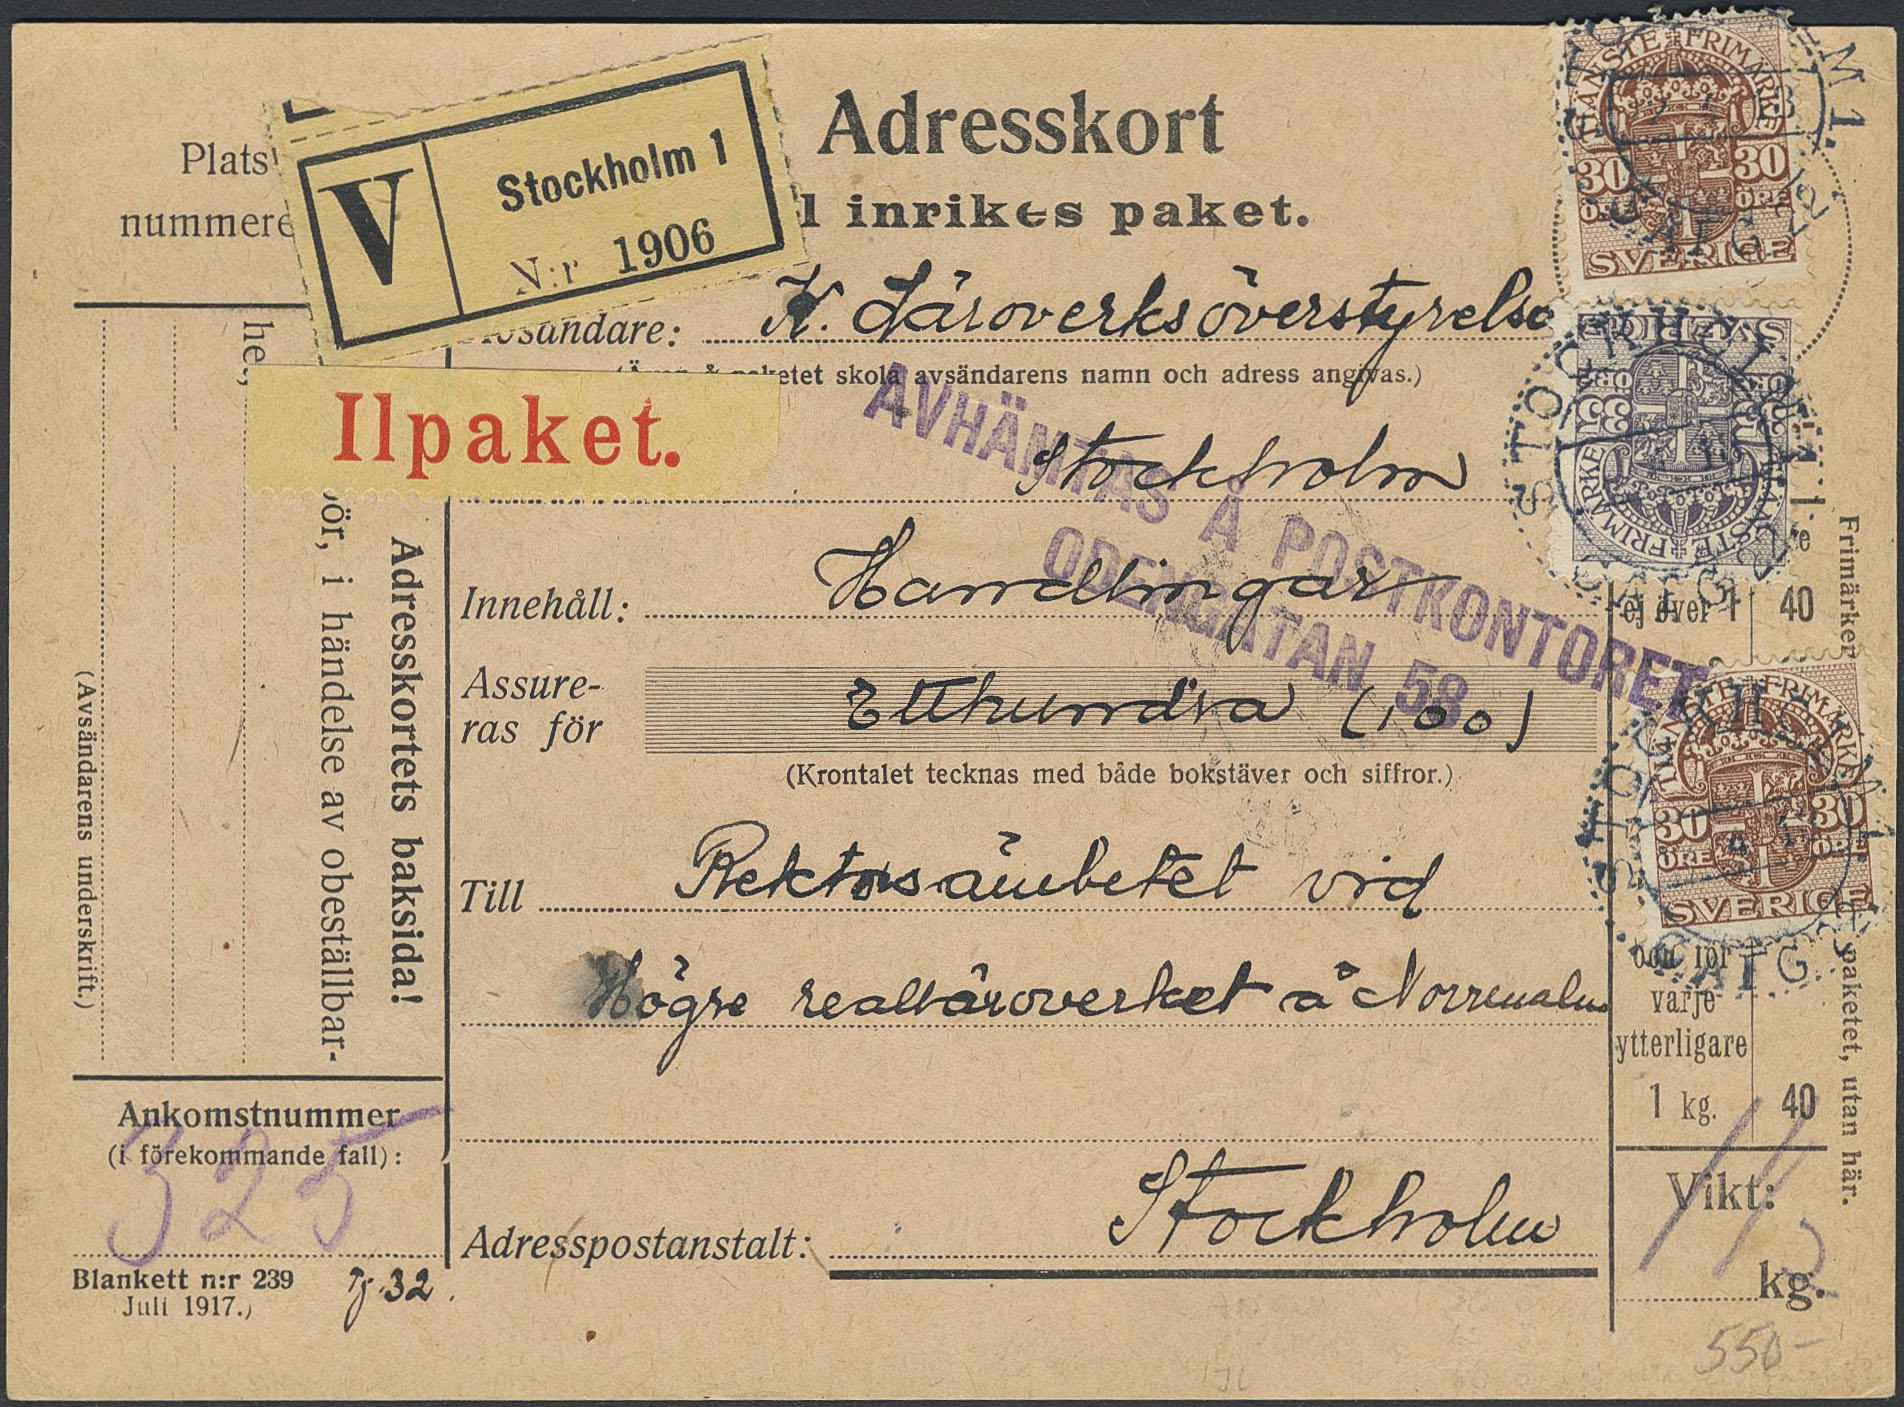 Adresskort
l inrikes paket.
Plats
nummere
V
Stockholm 1
N:r 1906
Avsändare: K. Läroverksöverstyrelse
paketet skola avsändarens namn och adress angivas.)
Ilpaket.
Stockholm
AVHÄMTAS Å POSTKONTORET
ODENGATAN 58
Innehåll: Handlingar
Assure-
ras för
Etthundra (100)
(Krontalet tecknas med både bokstäver och siffror.)
Till Rektorsämbetet vid
Högre realläroverket å Norrmalm
Adresspostanstalt: Stockholm
he,
ör, i händelse av obeställbar-
Adresskortets baksida!
(Avsändarens underskrift.)
Ankomstnummer
(i förekommande fall):
325
Blankett n:r 239
Juli 1917.)
Tj. 32.
TJÄNSTE FRIMÄRKE
30 30
ÖRE ÖRE
SVERIGE
STOCKHOLM 1.
TJÄNSTE FRIMÄRKE
35 35
ÖRE ÖRE
SVERIGE
STOCKHOLM 1.
ej över 1 40
TJÄNSTE FRIMÄRKE
30 30
ÖRE ÖRE
SVERIGE
STOCKHOLM 1
och för
varje
ytterligare
1 kg. 40
Frimärken
paketet, utan här.
Vikt:
kg.
550-